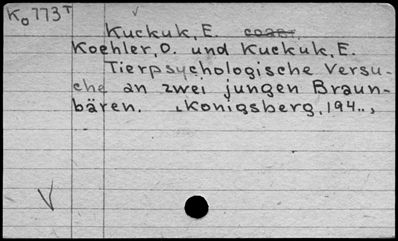 Ko773T
Kuckuk, E. coaer.
Koehler, O. und Kuckuk, E.
Tierpsychologische Versu-
che an zwei jungen Braun-
bären. , Königsberg, 194..,